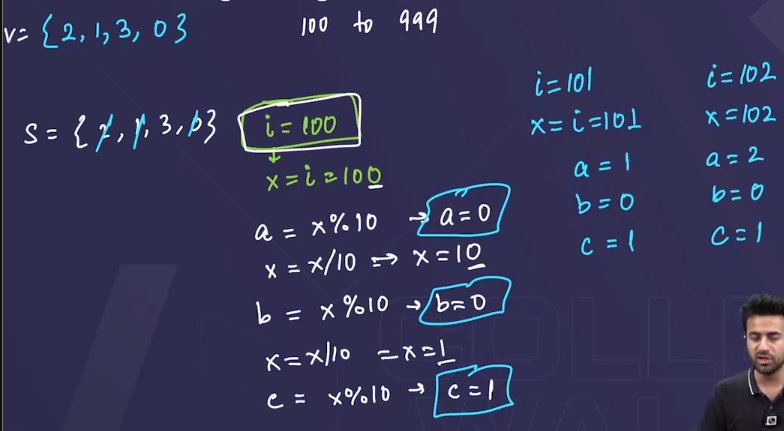 v= {2, 1, 3, 0}
100 to 999
S = {2, 1, 3, 0}
i = 100
x = i = 100
a = x%10 → a=0
x = x/10 ⇒ x = 10
b = x%10 → b=0
x=x/10 = x=1
c = x%10 → c=1
i=101
x=i=101
a=1
b=0
c=1
i=102
x=102
a=2
b=0
c=1